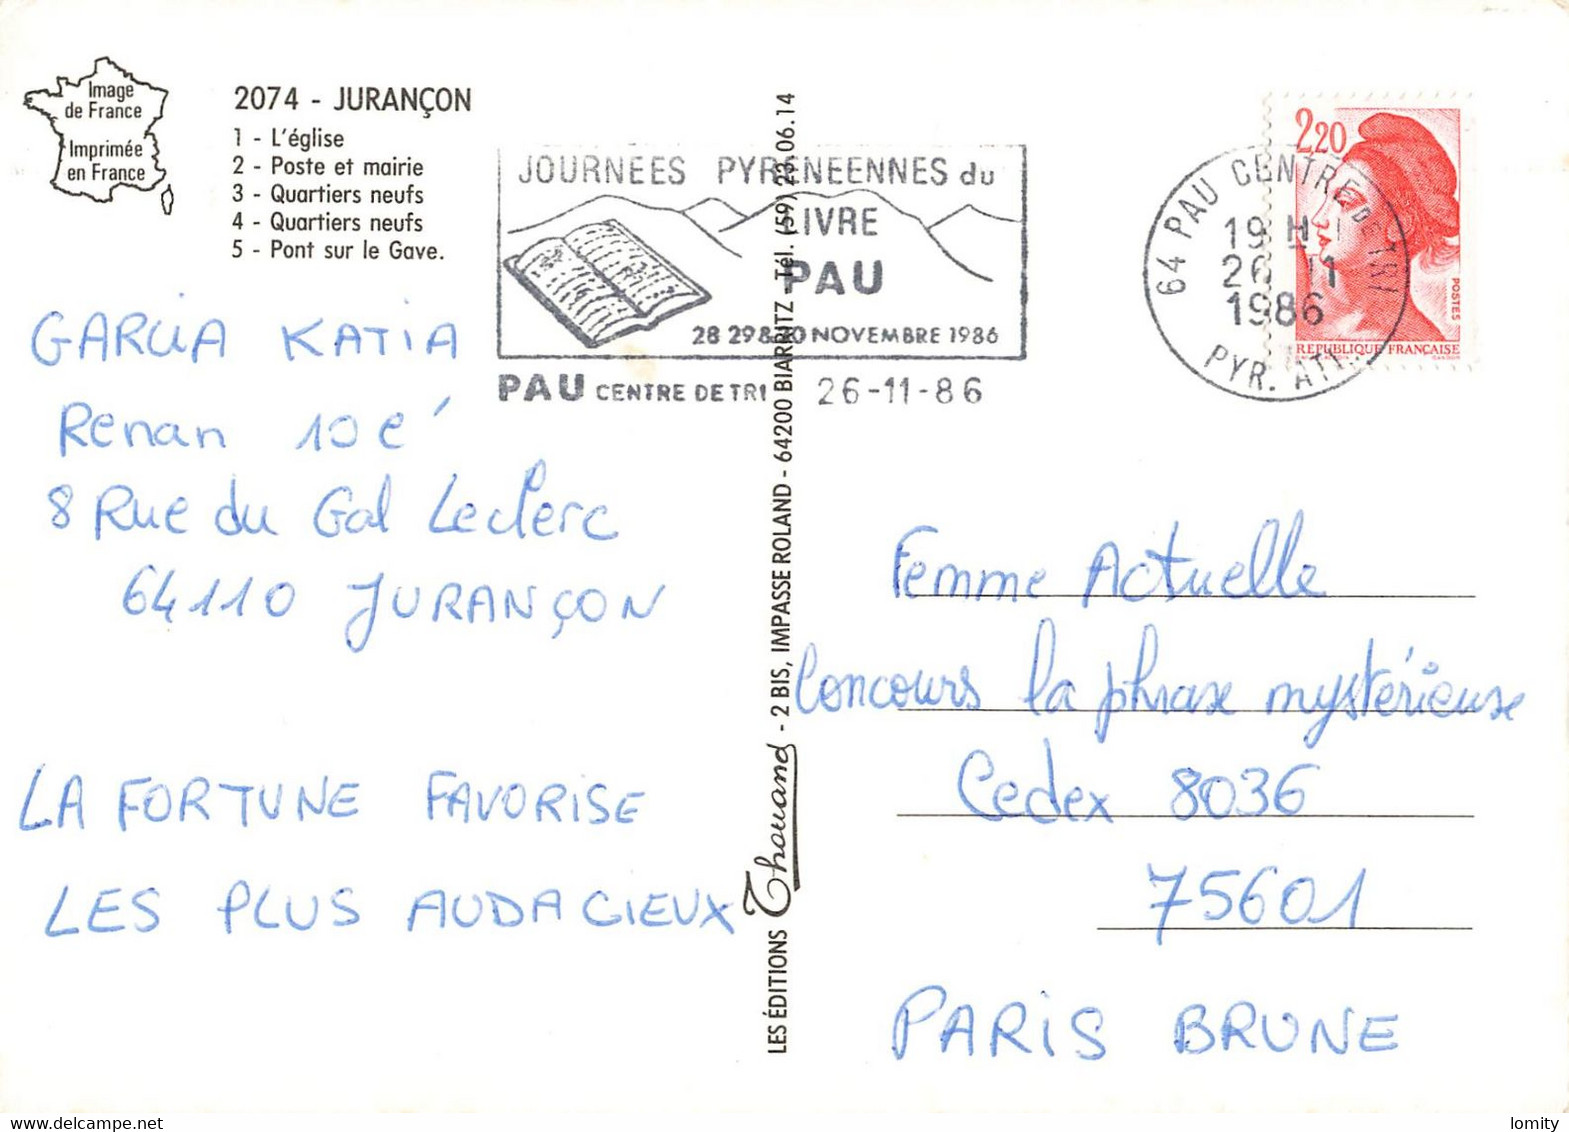 Image
de France
Imprimée
en France
2074 - JURANÇON
1 - L'église
2 - Poste et mairie
3 - Quartiers neufs
4 - Quartiers neufs
5 - Pont sur le Gave.
JOURNEES PYRENEENNES du
LIVRE
PAU
28 29 & 30 NOVEMBRE 1986
PAU CENTRE DE TRI 26-11-86
64 PAU CENTRE DE TRI
19 H
26 11
1986
PYR. ATL.
2,20
POSTES
REPUBLIQUE FRANÇAISE
GARCIA KATIA
Renan 10 é
8 Rue du Gal Leclerc
64110 JURANÇON
LA FORTUNE FAVORISE
LES PLUS AUDACIEUX
LES ÉDITIONS Thouand - 2 BIS, IMPASSE ROLAND - 64200 BIARRITZ - Tél. (59) 23.06.14
Femme Actuelle
Concours la phrase mystérieuse
Cedex 8036
75601
PARIS BRUNE
lomity